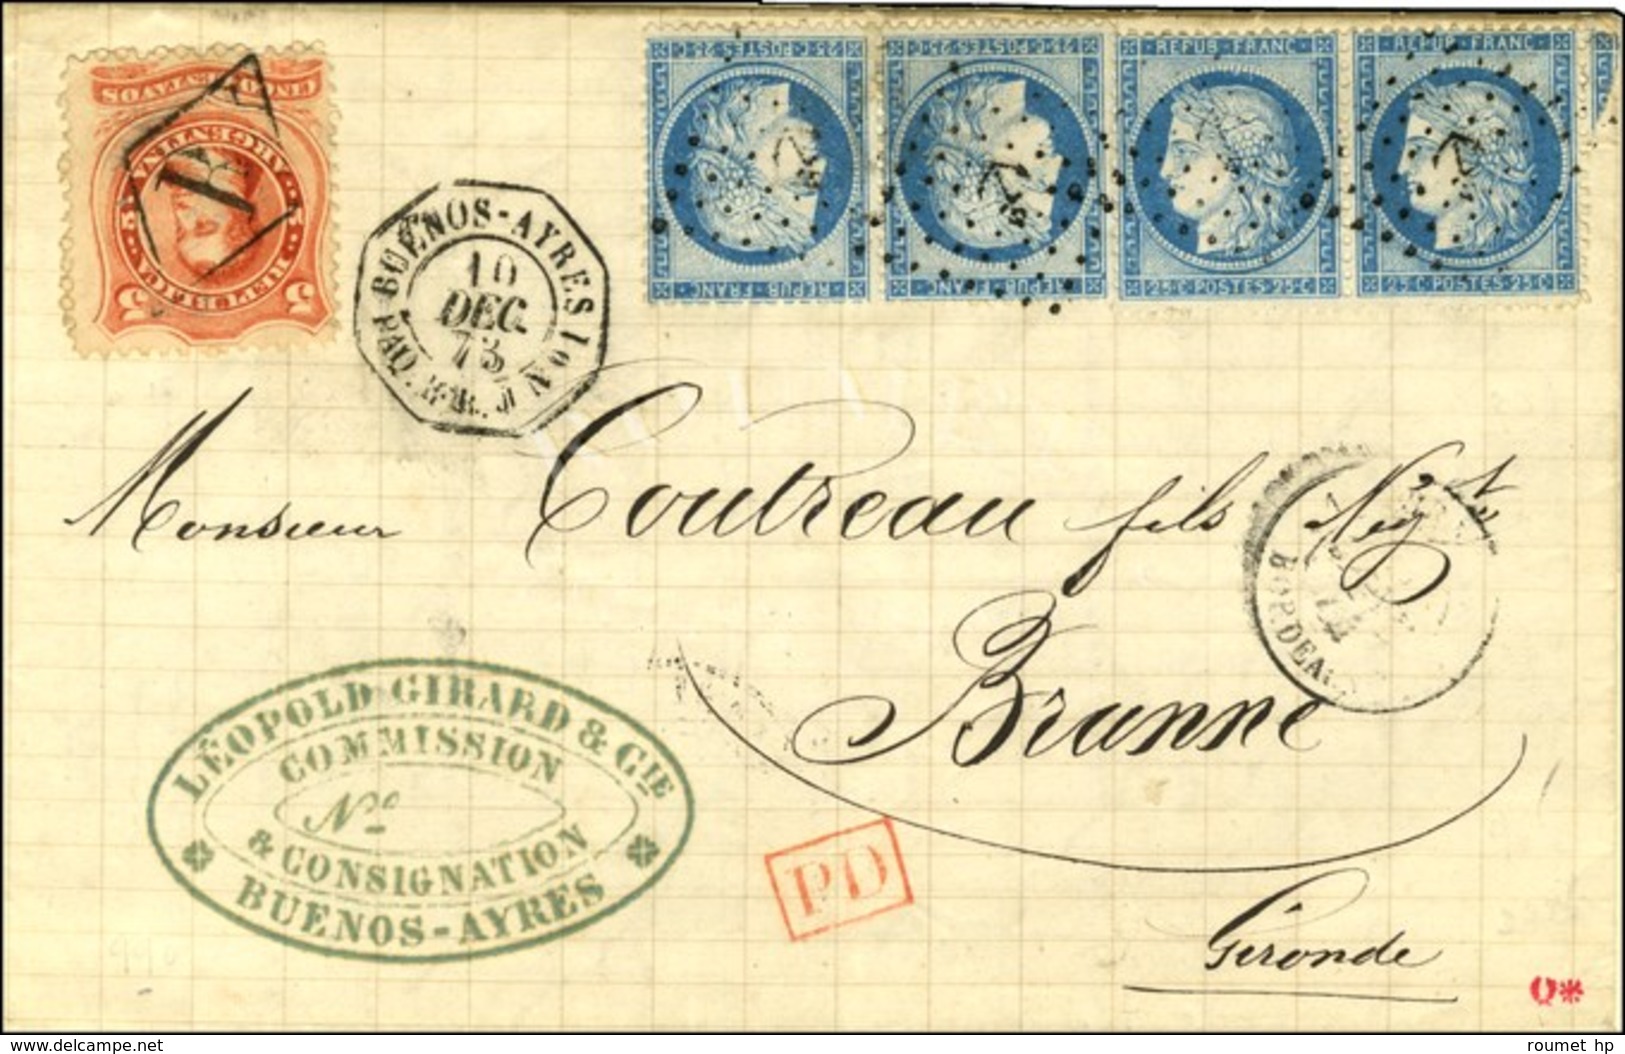 CINCO CENTAVOS
REPUBLICA ARGENTINA
5 5
25·C·POSTES·25·C
REPUB·FRANC
25·C·POSTES·25·C
REPUB·FRANC
REPUB·FRANC
25·C·POSTES·25·C
REPUB·FRANC
25·C·POSTES·25·C
BUENOS-AYRES 1ON
10
DEC.
73
PAQ. FR. J
Monsieur Coutreau fils Negt
Branne
Gironde
BORDEAUX
LÉOPOLD GIRARD & CIE
COMMISSION
No
& CONSIGNATION
BUENOS-AYRES
PD
roumet hp